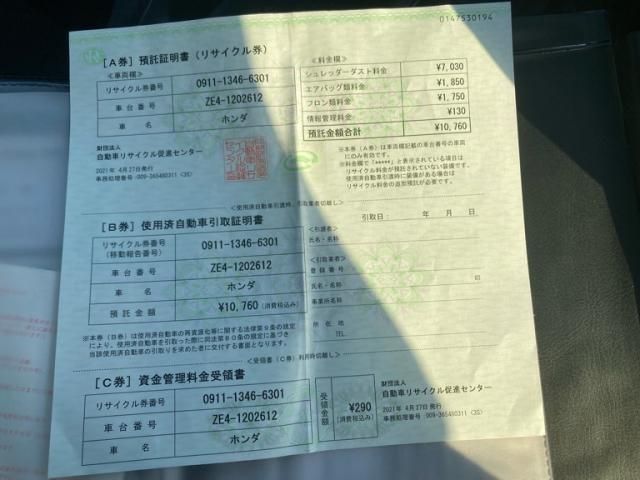 0147530194
[A券] 預託証明書(リサイクル券)
<車両欄>
リサイクル券番号 0911-1346-6301
車台番号 ZE4-1202612
車名 ホンダ
<料金欄>
シュレッダーダスト料金 ¥7,030
エアバッグ類料金 ¥1,850
フロン類料金 ¥1,750
情報管理料金 ¥130
預託金額合計 ¥10,760
財団法人
自動車リサイクル促進センター
2021年 4月27日発行
事務処理番号:009-365480311 (3S)
※本券(A券)は車両欄記載の車台番号の車両
にのみ有効です。
※料金欄で「*****」と表示されている項目は
リサイクル料金が預託されていない装備です。
使用済自動車引渡時に装備がある場合は
リサイクル料金の追加預託が必要です。
<使用済自動車引渡時、引取業者切離し>
[B券] 使用済自動車引取証明書
引取日: 年 月 日
リサイクル券番号 0911-1346-6301
(移動報告番号)
車台番号 ZE4-1202612
車名 ホンダ
預託金額 ¥10,760(消費税込み)
<引渡者>
氏名・名称
<引取業者>
登録番号
氏名・名称 印
事業所名称
所在地
TEL.
※本券(B券)は使用済自動車の再資源化等に関する法律第9条の規定
により、使用済自動車を引取った際に同法第80条の規定に基づき
当該使用済自動車の引取りを求めた者に交付する書面となります。
<受領書(C券)利用時切離し>
[C券] 資金管理料金受領書
リサイクル券番号 0911-1346-6301
車台番号 ZE4-1202612
車名 ホンダ
受領金額 ¥290
(消費税込み)
財団法人
自動車リサイクル促進センター
2021年 4月27日発行
事務処理番号:009-365480311 (3S)